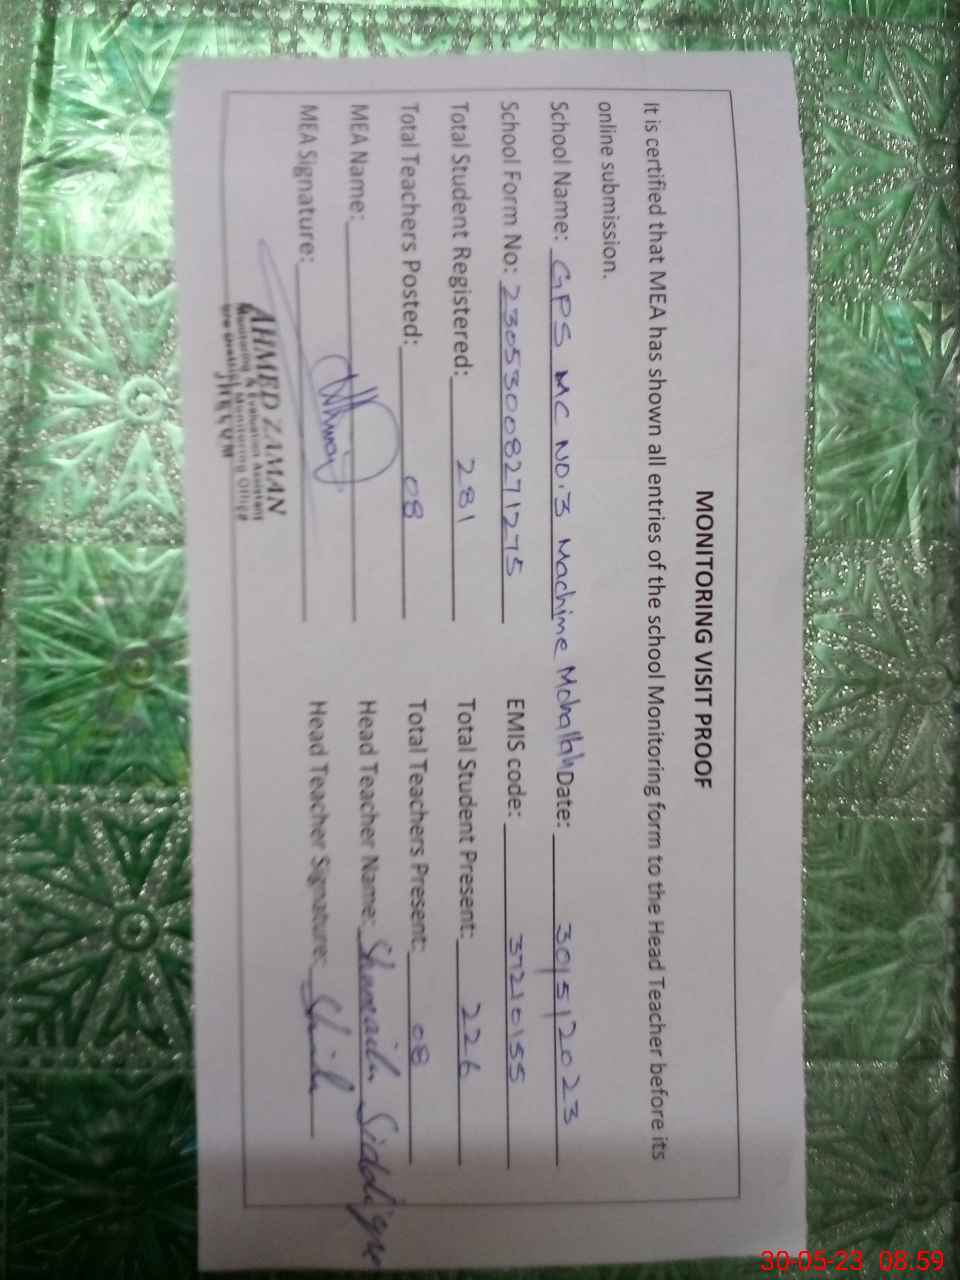 MONITORING VISIT PROOF
It is certified that MEA has shown all entries of the school Monitoring form to the Head Teacher before its
online submission.
School Name: GPS MC NO.3 Machine Mohallah Date: 30/5/2023
School Form No: 23053008271275 EMIS code: 37210155
Total Student Registered: 281 Total Student Present: 226
Total Teachers Posted: 08 Total Teachers Present: 08
MEA Name: Head Teacher Name: Siddique
MEA Signature: Head Teacher Signature:
AHMED ZAMAN
Monitoring & Evaluation Assistant
District Monitoring Office
JHELUM
30-05-23 08.59